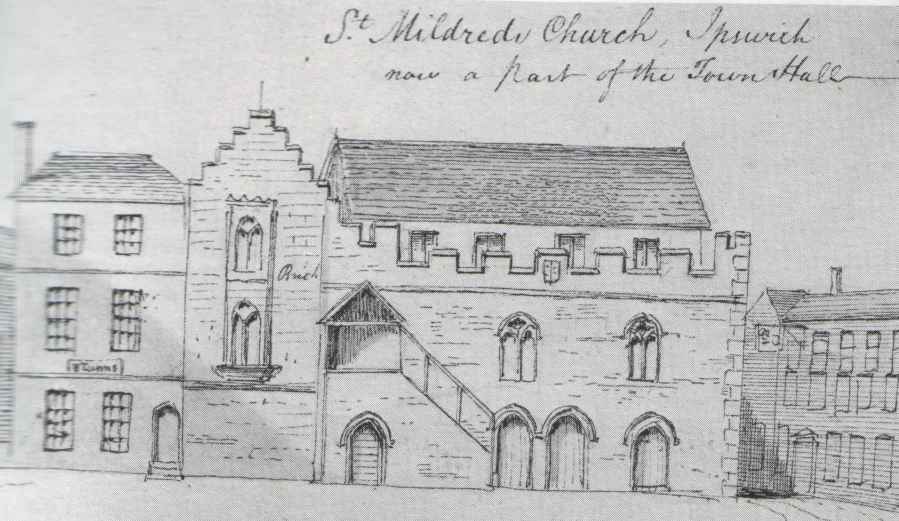 St Mildreds Church, Ipswich
now a Part of the Town Hall
Brick